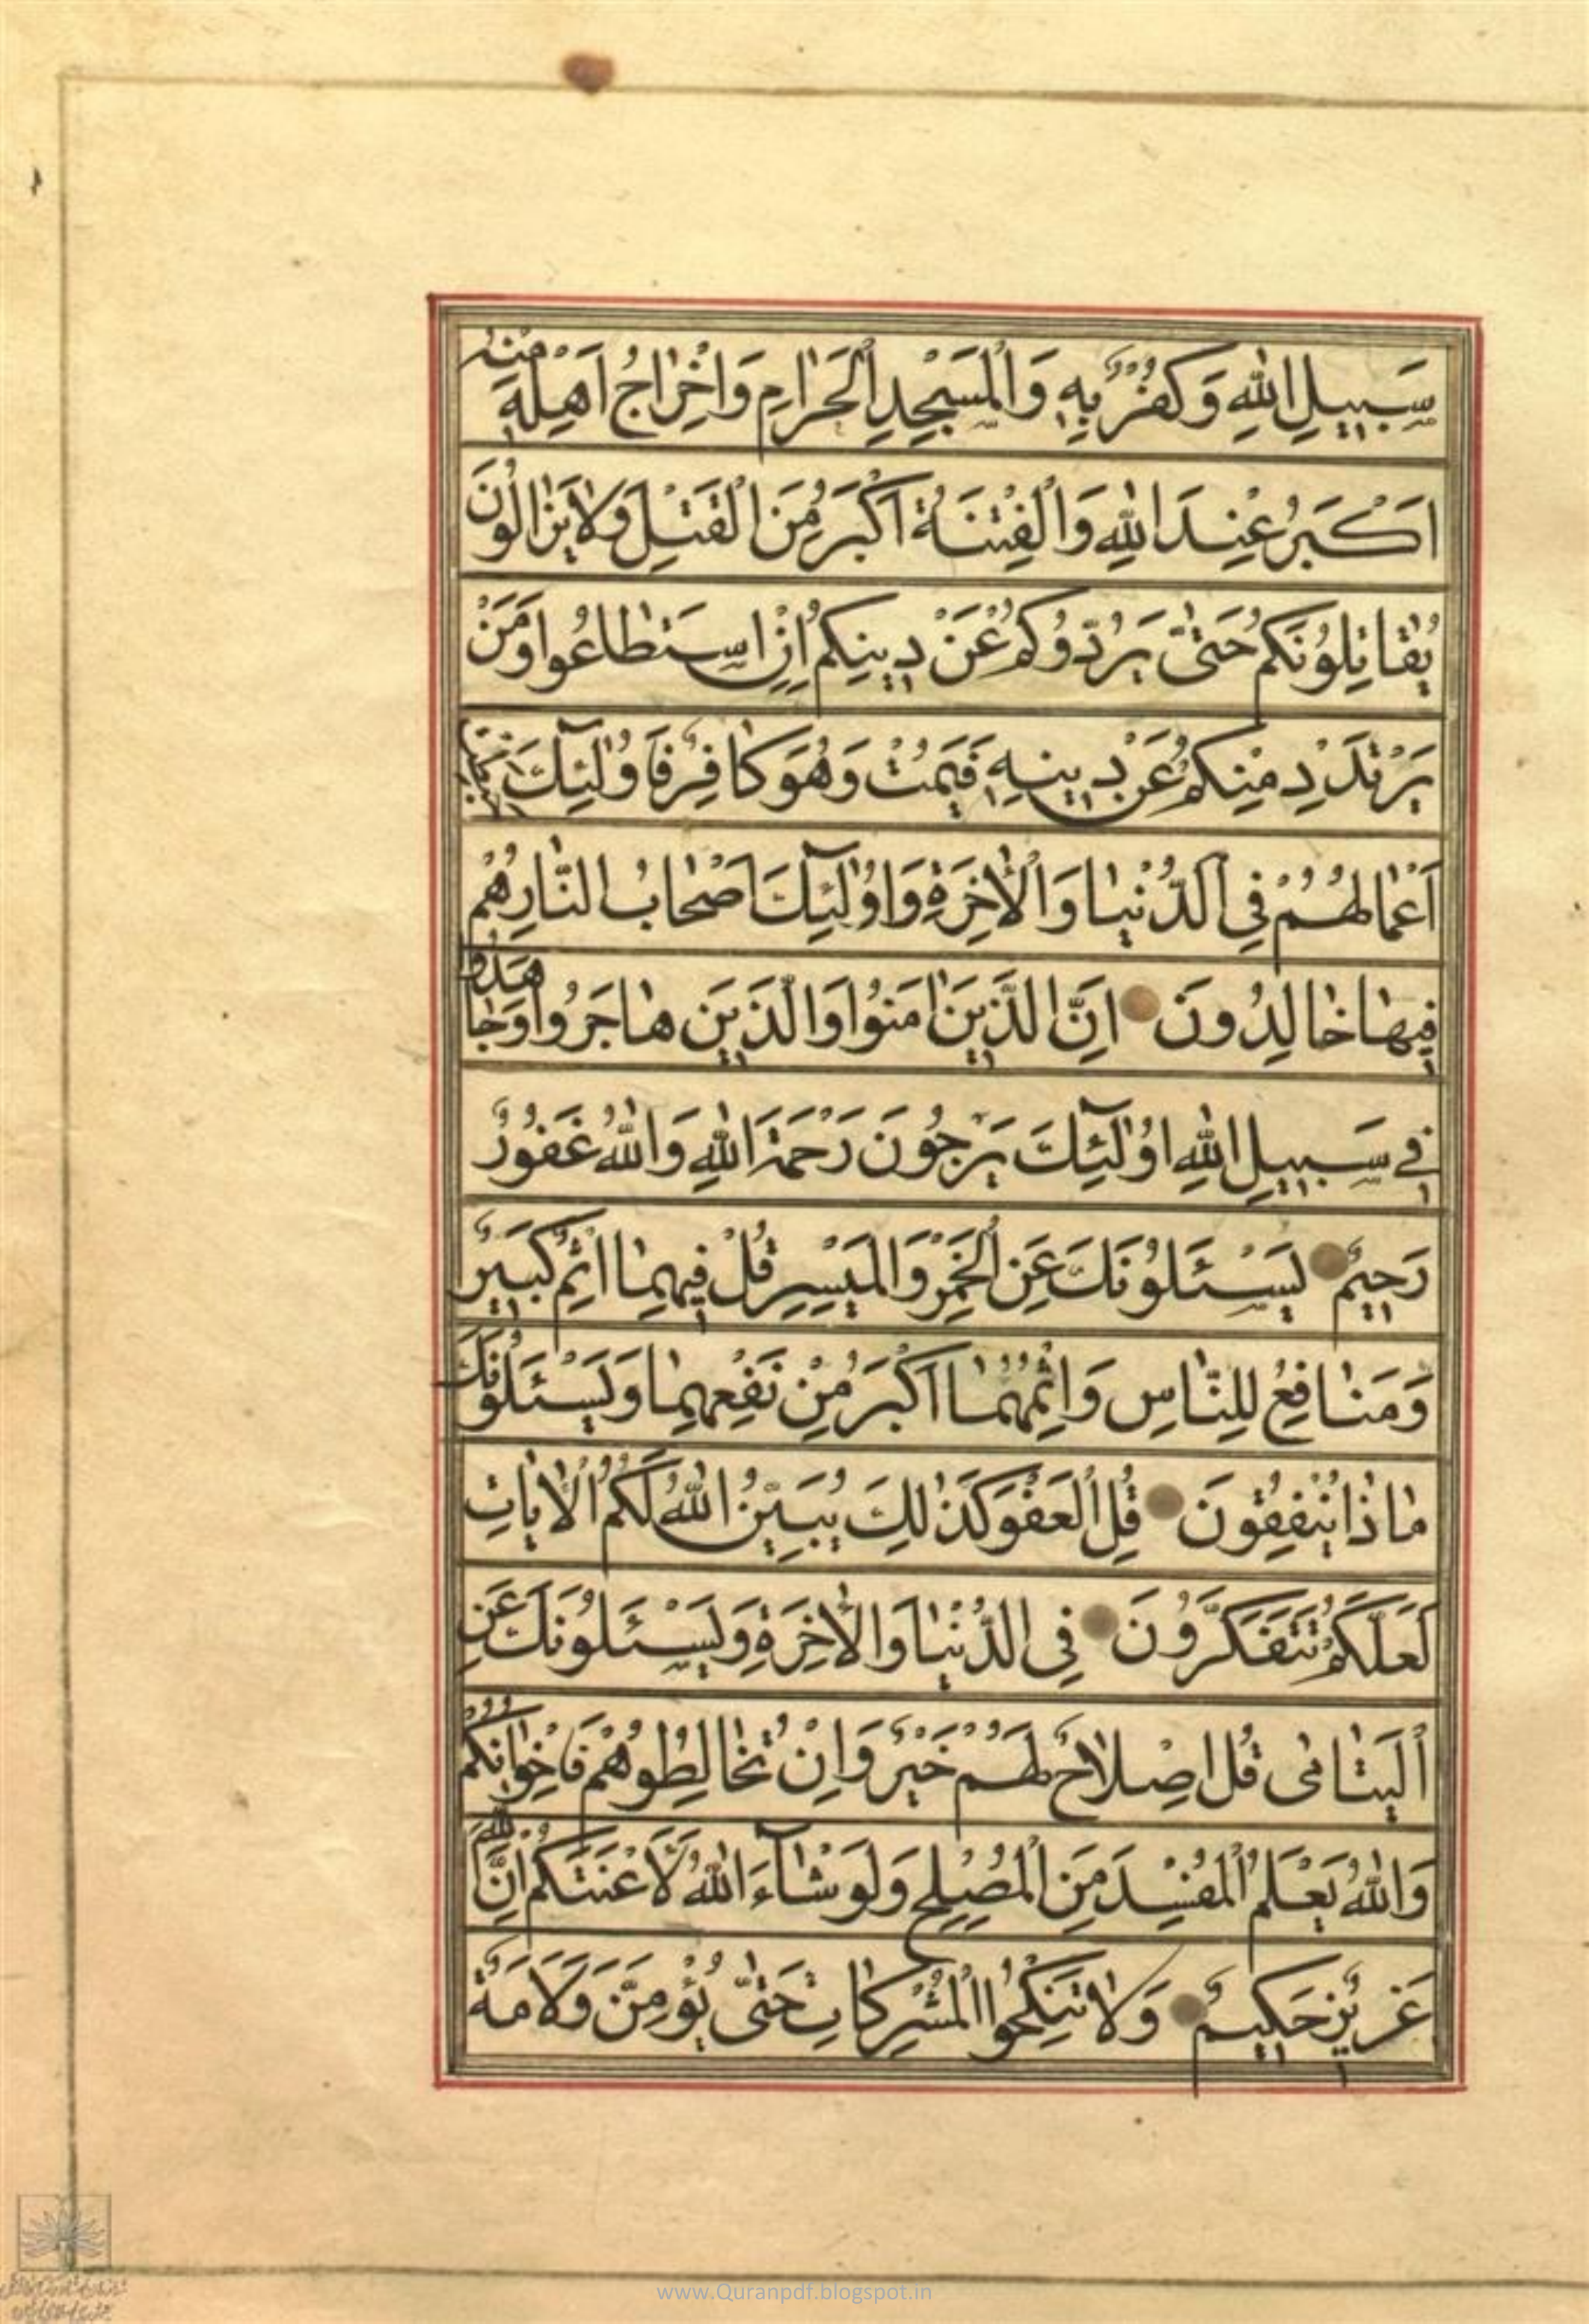 سَبِيلِ اللهِ وَكُفْرٌ بِهِ وَالْمَسْجِدِ الْحَرَامِ وَاِخْرَاجُ اَهْلِهِ مِنْهُ
اَكْبَرُ عِنْدَ اللهِ وَالْفِتْنَةُ اَكْبَرُ مِنَ الْقَتْلِ وَلَا يَزَالُونَ
يُقَاتِلُونَكُمْ حَتّٰى يَرُدُّوكُمْ عَنْ دِينِكُمْ اِنِ اسْتَطَاعُوا وَمَنْ
يَرْتَدِدْ مِنْكُمْ عَنْ دِينِهِ فَيَمُتْ وَهُوَ كَافِرٌ فَاُولٰٓئِكَ حَبِطَتْ
اَعْمَالُهُمْ فِى الدُّنْيَا وَالْاٰخِرَةِ وَاُولٰٓئِكَ اَصْحَابُ النَّارِ هُمْ
فِيهَا خَالِدُونَ اِنَّ الَّذِينَ اٰمَنُوا وَالَّذِينَ هَاجَرُوا وَجَاهَدُوا
فِى سَبِيلِ اللهِ اُولٰٓئِكَ يَرْجُونَ رَحْمَةَ اللهِ وَاللهُ غَفُورٌ
رَحِيمٌ يَسْئَلُونَكَ عَنِ الْخَمْرِ وَالْمَيْسِرِ قُلْ فِيهِمَا اِثْمٌ كَبِيرٌ
وَمَنَافِعُ لِلنَّاسِ وَاِثْمُهُمَا اَكْبَرُ مِنْ نَفْعِهِمَا وَيَسْئَلُونَكَ
مَاذَا يُنْفِقُونَ قُلِ الْعَفْوَ كَذٰلِكَ يُبَيِّنُ اللهُ لَكُمُ الْاٰيَاتِ
لَعَلَّكُمْ تَتَفَكَّرُونَ فِى الدُّنْيَا وَالْاٰخِرَةِ وَيَسْئَلُونَكَ عَنِ
الْيَتَامٰى قُلْ اِصْلَاحٌ لَهُمْ خَيْرٌ وَاِنْ تُخَالِطُوهُمْ فَاِخْوَانُكُمْ
وَاللهُ يَعْلَمُ الْمُفْسِدَ مِنَ الْمُصْلِحِ وَلَوْ شَآءَ اللهُ لَاَعْنَتَكُمْ اِنَّ اللهَ
عَزِيزٌ حَكِيمٌ وَلَا تَنْكِحُوا الْمُشْرِكَاتِ حَتّٰى يُؤْمِنَّ وَلَاَمَةٌ
www.Quranpdf.blogspot.in